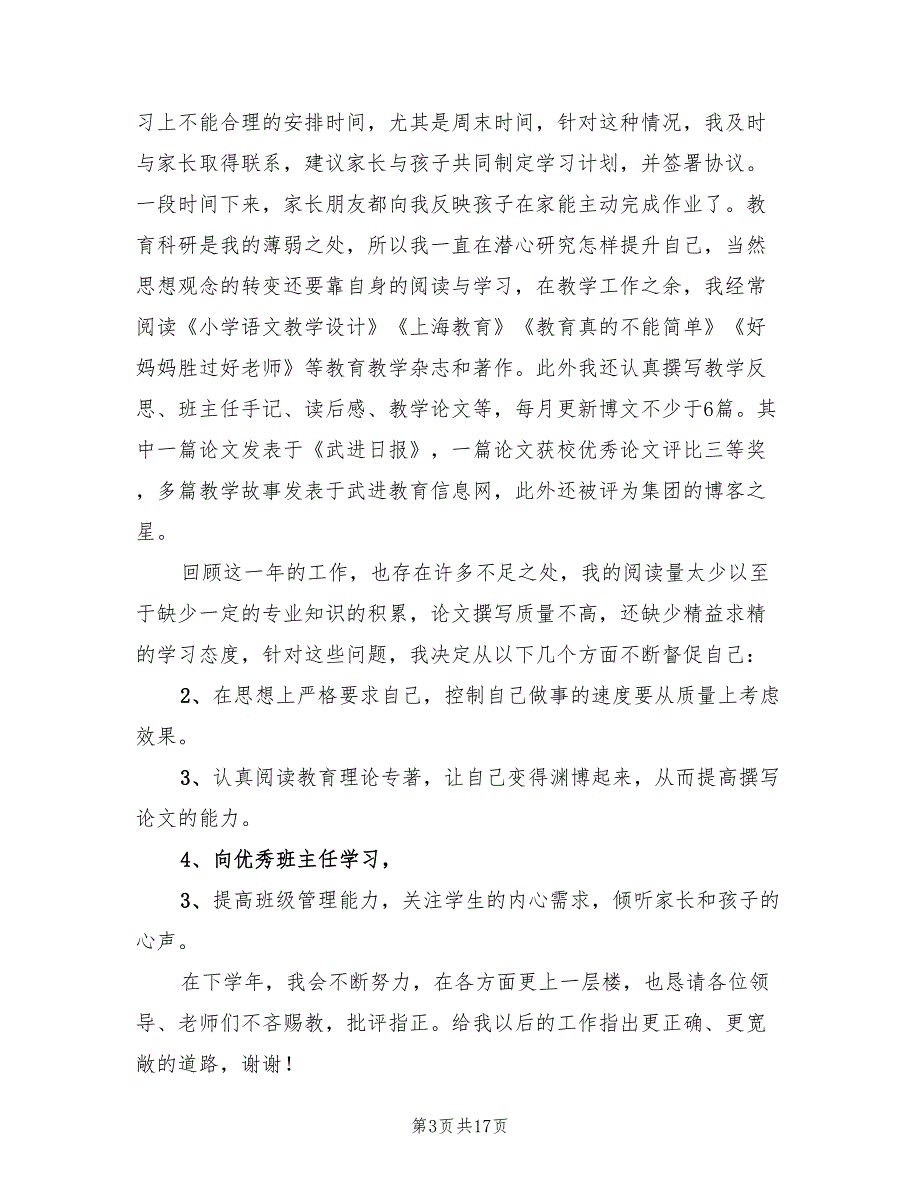 习上不能合理的安排时间，尤其是周末时间，针对这种情况，我及时
与家长取得联系，建议家长与孩子共同制定学习计划，并签署协议。
一段时间下来，家长朋友都向我反映孩子在家能主动完成作业了。教
育科研是我的薄弱之处，所以我一直在潜心研究怎样提升自己，当然
思想观念的转变还要靠自身的阅读与学习，在教学工作之余，我经常
阅读《小学语文教学设计》《上海教育》《教育真的不能简单》《好
妈妈胜过好老师》等教育教学杂志和著作。此外我还认真撰写教学反
思、班主任手记、读后感、教学论文等，每月更新博文不少于6篇。其
中一篇论文发表于《武进日报》，一篇论文获校优秀论文评比三等奖
，多篇教学故事发表于武进教育信息网，此外还被评为集团的博客之
星。
回顾这一年的工作，也存在许多不足之处，我的阅读量太少以至
于缺少一定的专业知识的积累，论文撰写质量不高，还缺少精益求精
的学习态度，针对这些问题，我决定从以下几个方面不断督促自己：
2、在思想上严格要求自己，控制自己做事的速度要从质量上考虑
效果。
3、认真阅读教育理论专著，让自己变得渊博起来，从而提高撰写
论文的能力。
4、向优秀班主任学习，
3、提高班级管理能力，关注学生的内心需求，倾听家长和孩子的
心声。
在下学年，我会不断努力，在各方面更上一层楼，也恳请各位领
导、老师们不吝赐教，批评指正。给我以后的工作指出更正确、更宽
敞的道路，谢谢！
第3页共17页